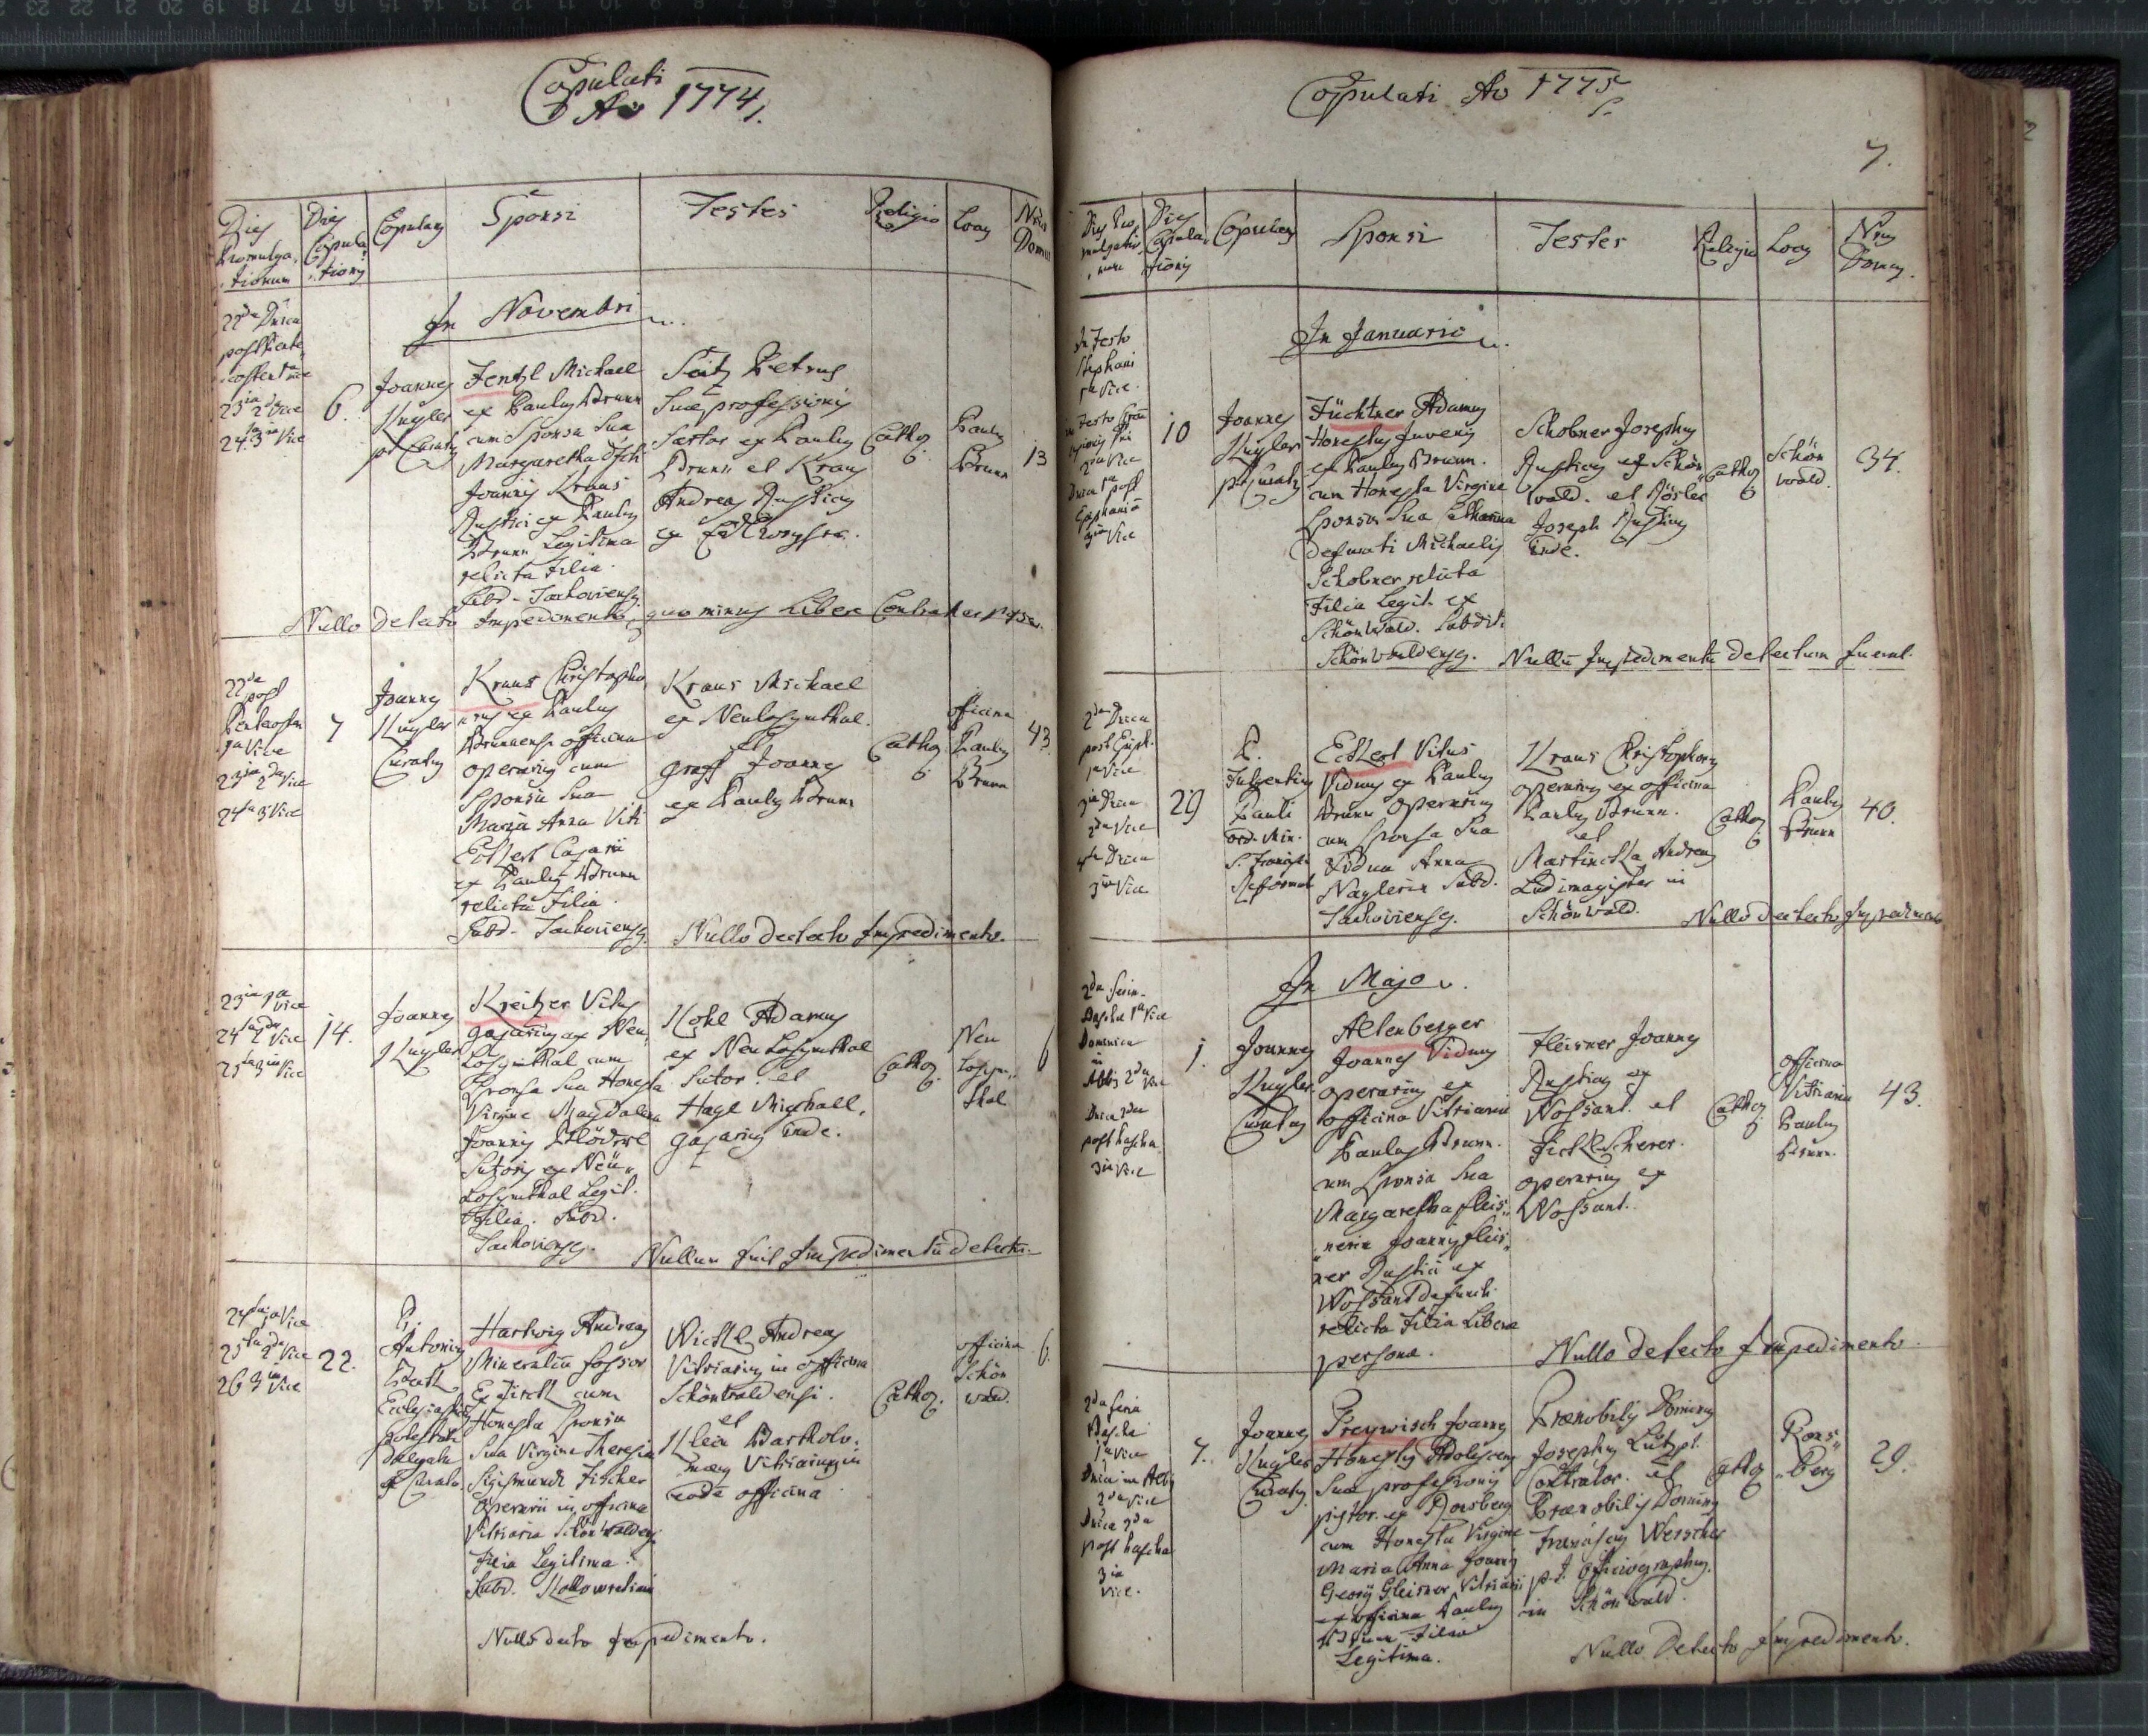 Copulati
Ao 1774.
Dies
Promulga,
tionum
Dies
Copula
tionis
Copulans
Sponsi
Testes
Religio
Locus
Nrus
Domus
In Novembri
22da Dnica
post Pente,
costen 1ma vice
23tia 2da vice
24ta 3tia Vice
6.
Joannes
Kugler
pt Curatus
Jentzl Michael
ex Paulus Brunn
cum Sponsa Sua
Margaretha
Joannis Kraus
Rustici ex Paulus
Brunn Legitima
relicta filia.
Subd. Tachoviensis.
Seitz Petrus
Suae professionis
Sartor ex Paulus
Brunn et Kraus
Andreas Rusticus
ex
Cathol.
Paulus
Brunn
13
Nullo detecto Impedimento, quo minus libere Contrahere
22da
post
Pentecosten
1ma Vice
23tia 2da Vice
24ta 3 Vice
7
Joannes
Kugler
Curatus
Kraus Christopho
rus ex Paulus
Brunnensi officina
operarius cum
Sponsa Sua
Maria Anna Viti
Ettlerl Casarii
ex Paulus Brunn
relicta filia.
Subd. Tachoviensis.
Kraus Michael
ex Neulosymthal.
et
Graff Joannes
ex Paulus Brunn
Cathol.
officina
Paulus
Brunn
43
Nullo detecto Impedimento.
23tia 1ma vice
24ta 2da Vice
25ta 3tia Vice
14.
Joannes
Kugler
Kreitzer Vitus
Casarius ex Neu,
Losymthal cum
Sponsa Sua Honesta
Virgine Magdalena
Joannis
Sutoris ex Neu,,
Losymthal Legit.
filia. Subd.
Tachoviensis.
Kohl Adamus
ex Neu Losymthal
Sutor. et
Hagl Michael,
Casarius inde.
Cathol.
Neu
Losym,,
thal
6
Nullum fuit Impedimentu detectu.
24ta 1ma Vice
25ta 2da Vice
26 3tia Vice
22.
P.
Antonius
Ecclesiastica
potestate
Delegata
a Curato
Hartwig Andreas
Mineraliu fossor
Ex cum
Honesta Sponsa
Sua Virgine Theresia
Sigismundi Fischer
Operarii in officina
Vitriaria Schönwaldensi
filia Legitima.
Subd. Kollowratiani
Wickl Andreas
Vitriarius in officina
Schönwaldensi.
et
Klein Bartholo,
maeus Vitriarius in
eade officina
Cathol.
officina
Schön
wald.
6.
Nullo detecto Impedimento.
Copulati Ao 1775.
7.
Dies Pro
mulgatio,
num
Dies
Copula,
tionis
Copulans
Sponsi
Testes
Religio
Locus
Nrus
Domus.
In Januario
In Festo
Stephani
1ma Vice.
in Festo
2da Vice
Dnica 1ma post
Epiphania
3tia Vice
10
Joannes
Kugler
pt Curatus
Füchtner Adamus
Honestus Juvenis
ex Paulus Brunn.
cum Honesta Virgine
Sponsa Sua Catharina
defuncti Michaelis
Schobner relicta
Filia Legit. ex
Schönwald. Subdit.
Schönwaldensis.
Schobner Josephus
Rusticus ex Schön,,
wald. et Rösler
Joseph Rusticus
inde.
Cathol.
Schön
wald.
34.
Nullu Impedimentu detectum fuerat.
2da Dnica
post Epiph.
1ma Vice
3tia Dnica
2da Vice
4ta Dnica
3tia Vice
29
P.
Fulgentius
Pauli
ord. Min.
S. Francisci
Reformat
Ettlerl Vitus
Viduus ex Paulus
Brunn operarius
cum Sponsa Sua
Vidua Anna
Naglerin Subd.
Tachoviensis.
Kraus Christophorus
operarius ex officina
Paulus Brunn.
et
Martinetka Andreas
Ludimagister in
Schönwald.
Cathol.
Paulus
Brunn
40.
Nullo detecto Impedimento
In Majo.
2da Feria
Paschae 1ma Vice
Dominica
in
Albis 2da Vice
Dnica 2da
post Pascha
3tia Vice
1.
Joannes
Kugler
Curatus
Altenberger
Joannes Viduus
operarius ex
officina Vitriaria
Paulus Brunn.
cum Sponsa Sua
Margaretha Fleis,,
nerin Joannis Fleis,,
ner Rustici ex
Wossant defuncti
relicta Filia Liberae
personae.
Fleisner Joannes
Rusticus ex
Wossant. et
Fickl Scherer.
operarius ex
Wossant.
Cathol.
officina
Vitriaria
Paulus
Brunn.
43.
Nullo detecto Impedimento.
2da feria
Paschae
1ma Vice
Dnica in Albis
2da Vice
Dnica 2da
post Pascha
3tia
Vice.
7.
Joannes
Kugler
Curatus
Preywisch Joannes
Honestus Adolescens
Suae professionis
pistor. ex Ronsberg
cum Honesta Virgine
Maria Anna Joannis
Georg Gleisner Vitriarii
ex officina Paulus
Brunn Filia
Legitima.
Praenobilis Dominus
Josephus
Contralor. et
Praenobilis Dominus
Franciscus Werscher
p.t. officiographus.
in Schönwald.
Cathol
Rons,,
berg
29.
Nullo Detecto Impedimento.